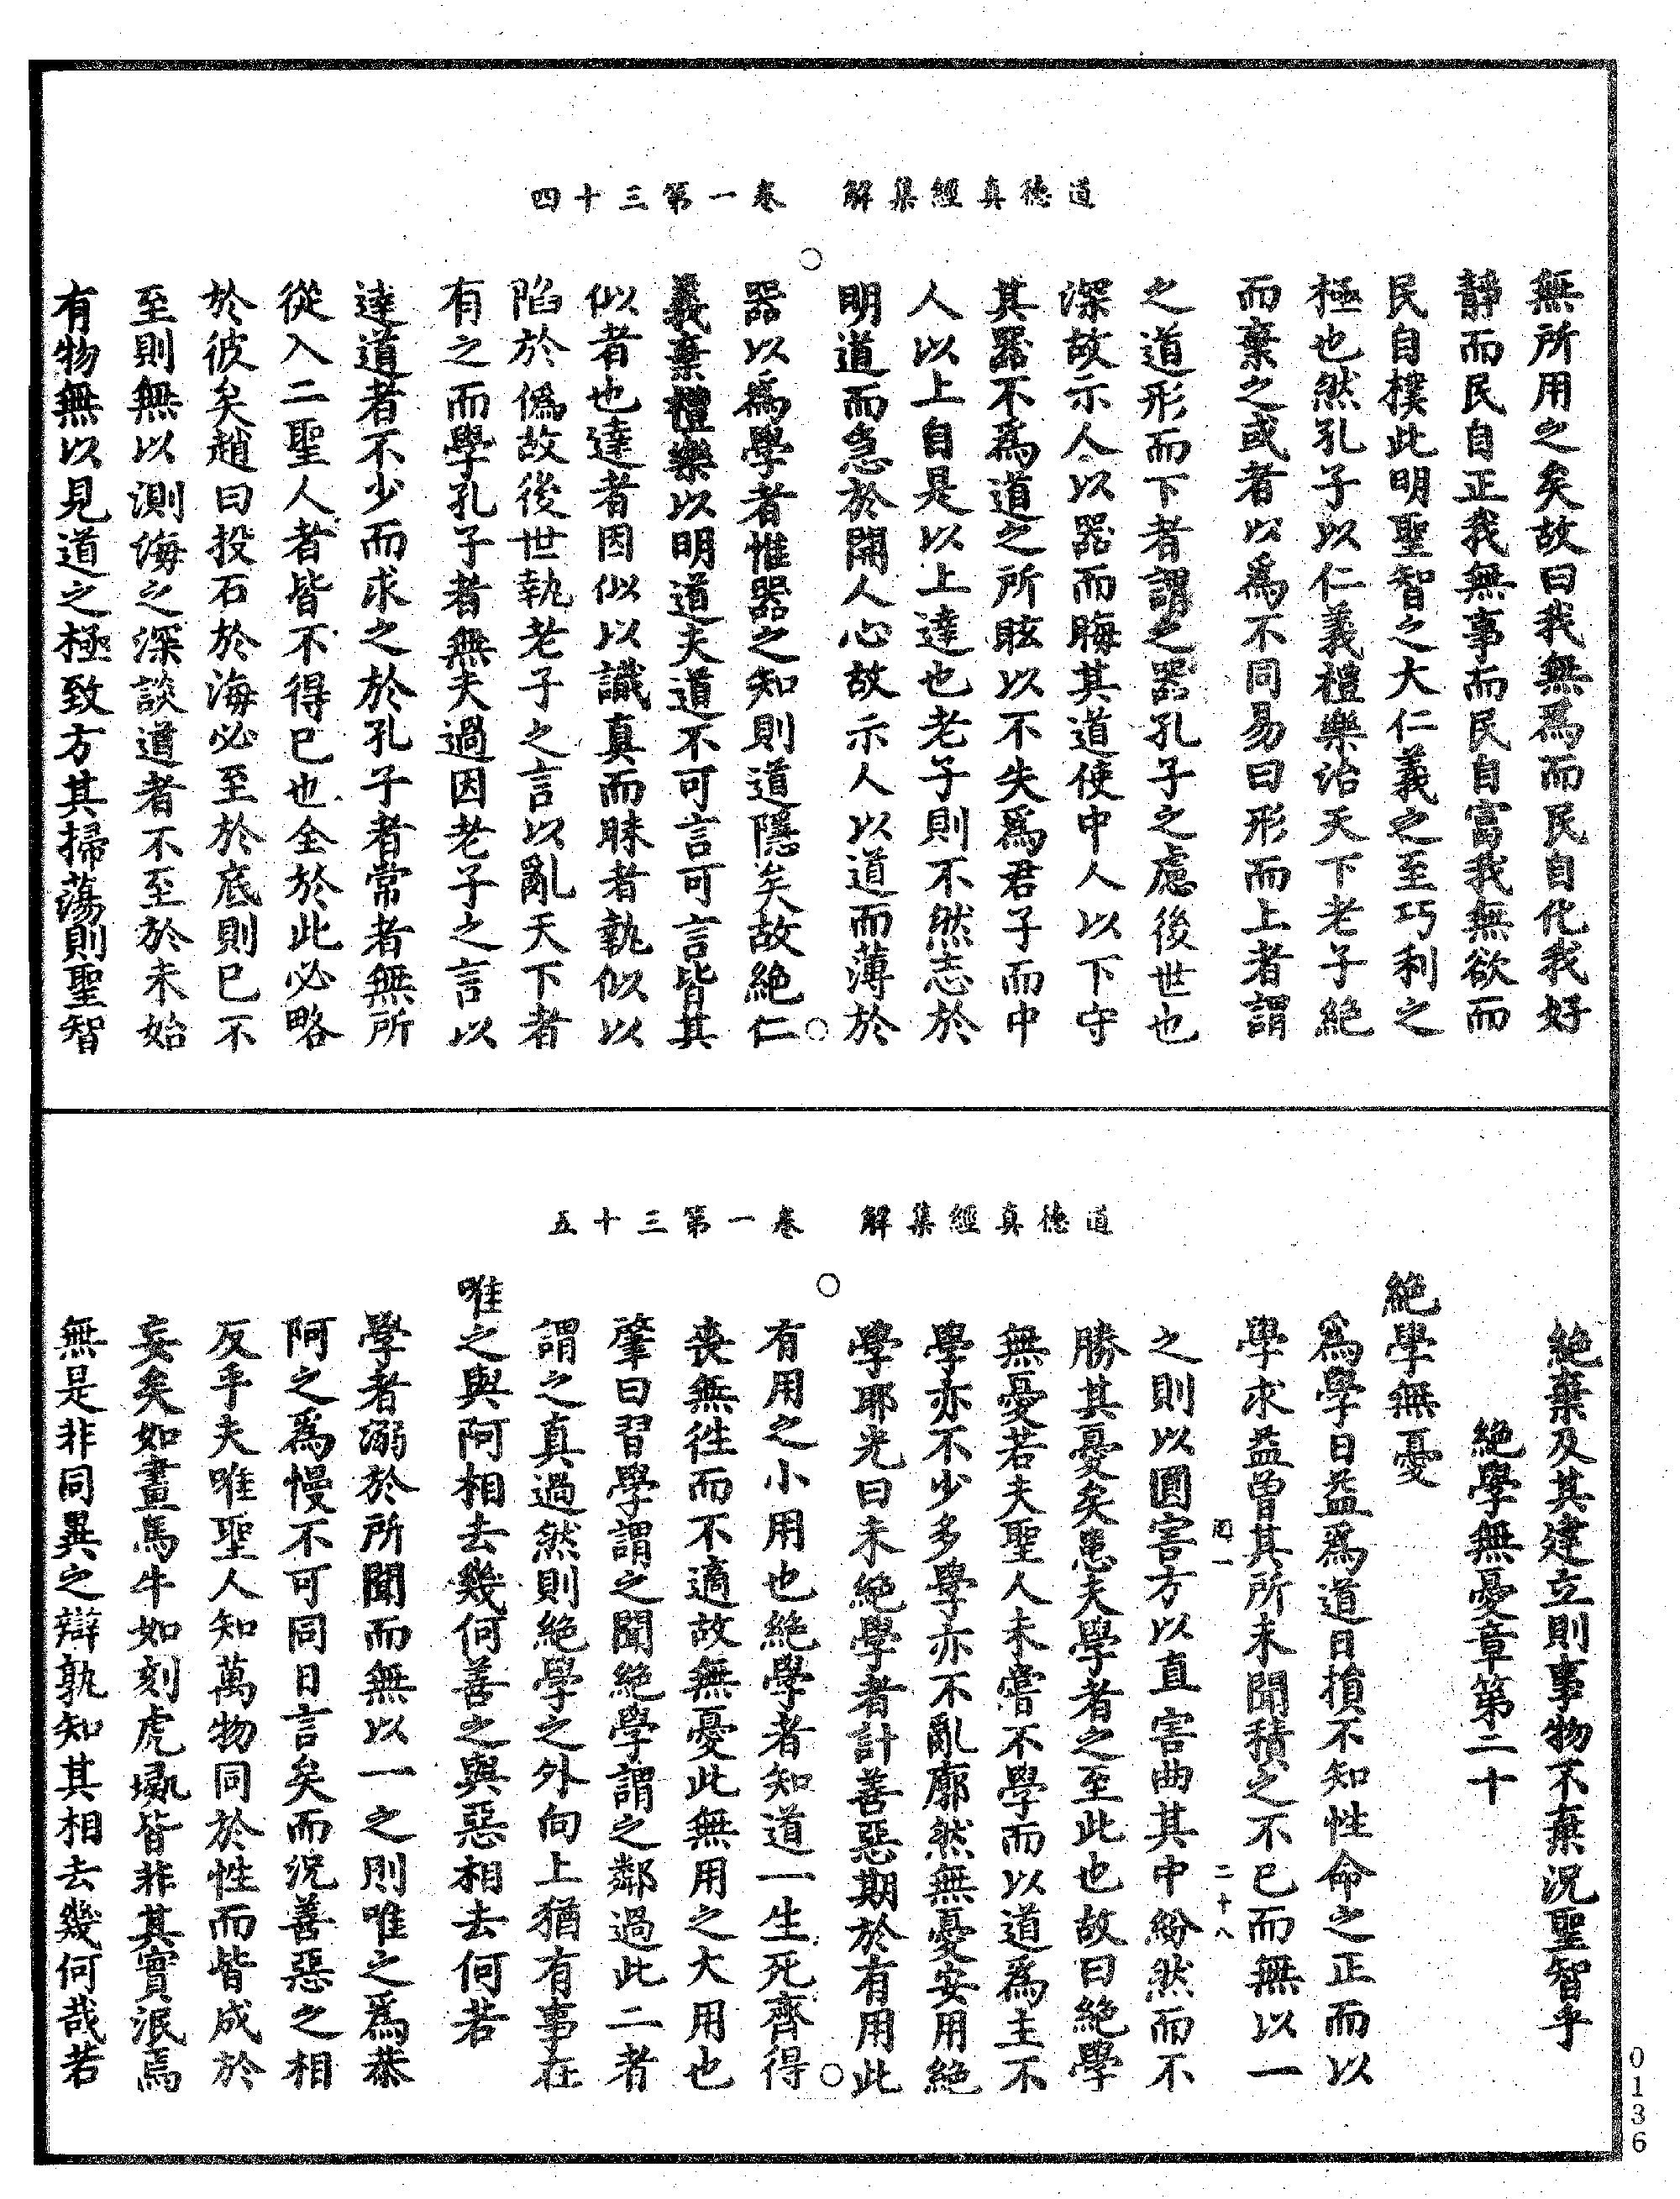 道德真經集解　卷一第三十四
無所用之矣故曰我無為而民自化我好
靜而民自正我無事而民自富我無欲而
民自樸此明聖智之大仁義之至巧利之
極也然孔子以仁義禮樂治天下老子絕
而棄之或者以為不同易曰形而上者謂
之道形而下者謂之器孔子之慮後世也
深故示人以器而晦其道使中人以下守
其器不為道之所眩以不失為君子而中
人以上自是以上達也老子則不然志於
明道而急於開人心故示人以道而薄於
器以為學者惟器之知則道隱矣故絕仁
義棄禮樂以明道夫道不可言可言皆其
似者也達者因似以識真而昧者執似以
陷於偽故後世執老子之言以亂天下者
有之而學孔子者無夫過因老子之言以
達道者不少而求之於孔子者常者無所
從入二聖人者皆不得已也全於此必略
於彼矣趙曰投石於海必至於底則已不
至則無以測海之深談道者不至於未始
有物無以見道之極致方其掃蕩則聖智
道德真經集解　卷一第三十五
絕棄及其建立則事物不棄況聖智乎
絕學無憂章第二十
絕學無憂
為學日益為道日損不知性命之正而以
學求益曾其所未聞積之不已而無以一
之則以圓害方以直害曲其中紛然而不
勝其憂矣患夫學者之至此也故曰絕學
無憂若夫聖人未嘗不學而以道為主不
學亦不少多學亦不亂廓然無憂安用絕
學耶光曰未絕學者計善惡期於有用此
有用之小用也絕學者知道一生死齊得
喪無往而不適故無憂此無用之大用也
肇曰習學謂之聞絕學謂之鄰過此二者
謂之真過然則絕學之外向上猶有事在
唯之與阿相去幾何善之與惡相去何若
學者溺於所聞而無以一之則唯之為恭
阿之為慢不可同日言矣而況善惡之相
反乎夫唯聖人知萬物同於性而皆成於
妄矣如畫馬牛如刻虎彘皆非其實泯焉
無是非同異之辯孰知其相去幾何哉若
二十八
0136